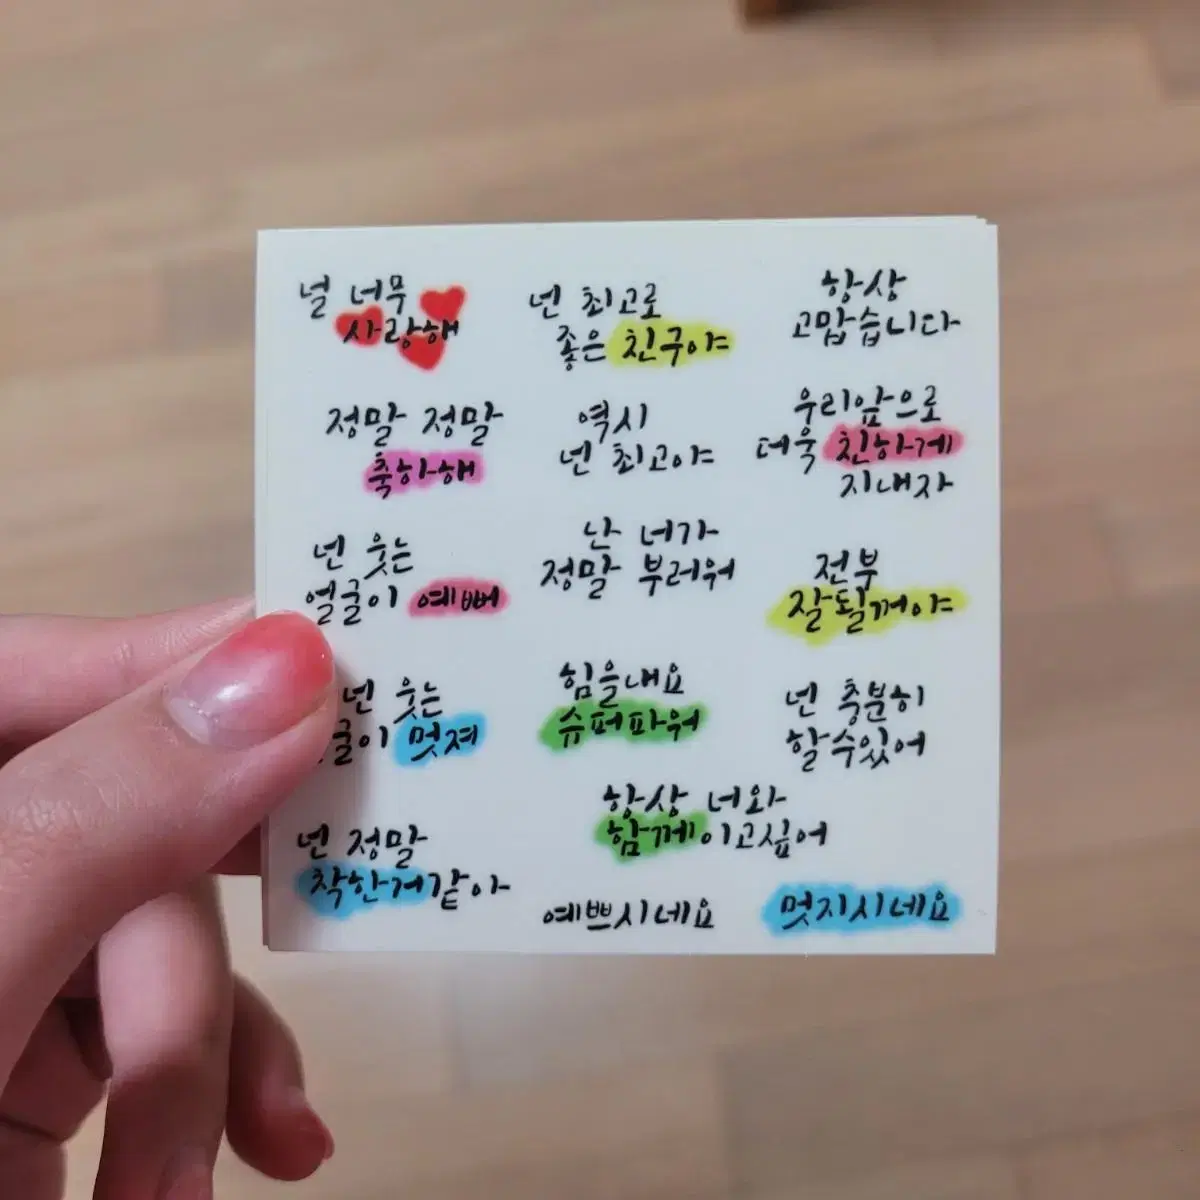 널 너무
사랑해
넌 최고로
좋은 친구야
항상
고맙습니다
정말 정말
축하해
역시
넌 최고야
우리앞으로
더욱 친하게
지내자
넌 웃는
얼굴이 예뻐
난 네가
정말 부러워
전부
잘될꺼야
넌 웃는
굴이 멋져
힘을내요
슈퍼파워
넌 충분히
할수있어
넌 정말
착한거같아
항상 너와
함께이고싶어
예쁘시네요
멋지시네요